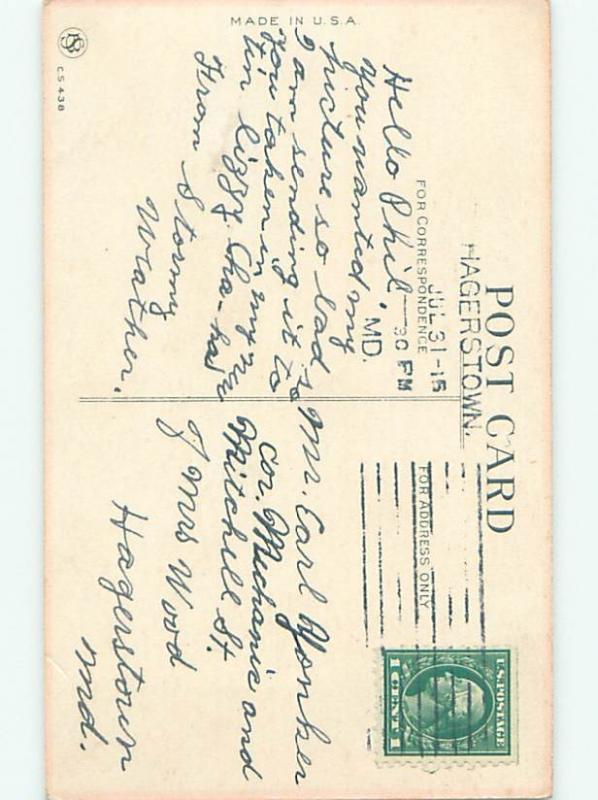 POST CARD
HAGERSTOWN,
MD.
JUL 31-15
30 PM
FOR CORRESPONDENCE
FOR ADDRESS ONLY
U.S. POSTAGE
1 CENT 1
Hello Phil—
You wanted my
picture so bad so
I am sending it to
you taken in my new
tin lizzy. Cha-ha
From Stormy
Weather.
Mr. Earl Yonker
Cor. Mechanic and
Mitchill St.
% Mrs Wood
Hagerstown
Md.
MADE IN U.S.A.
CS 438